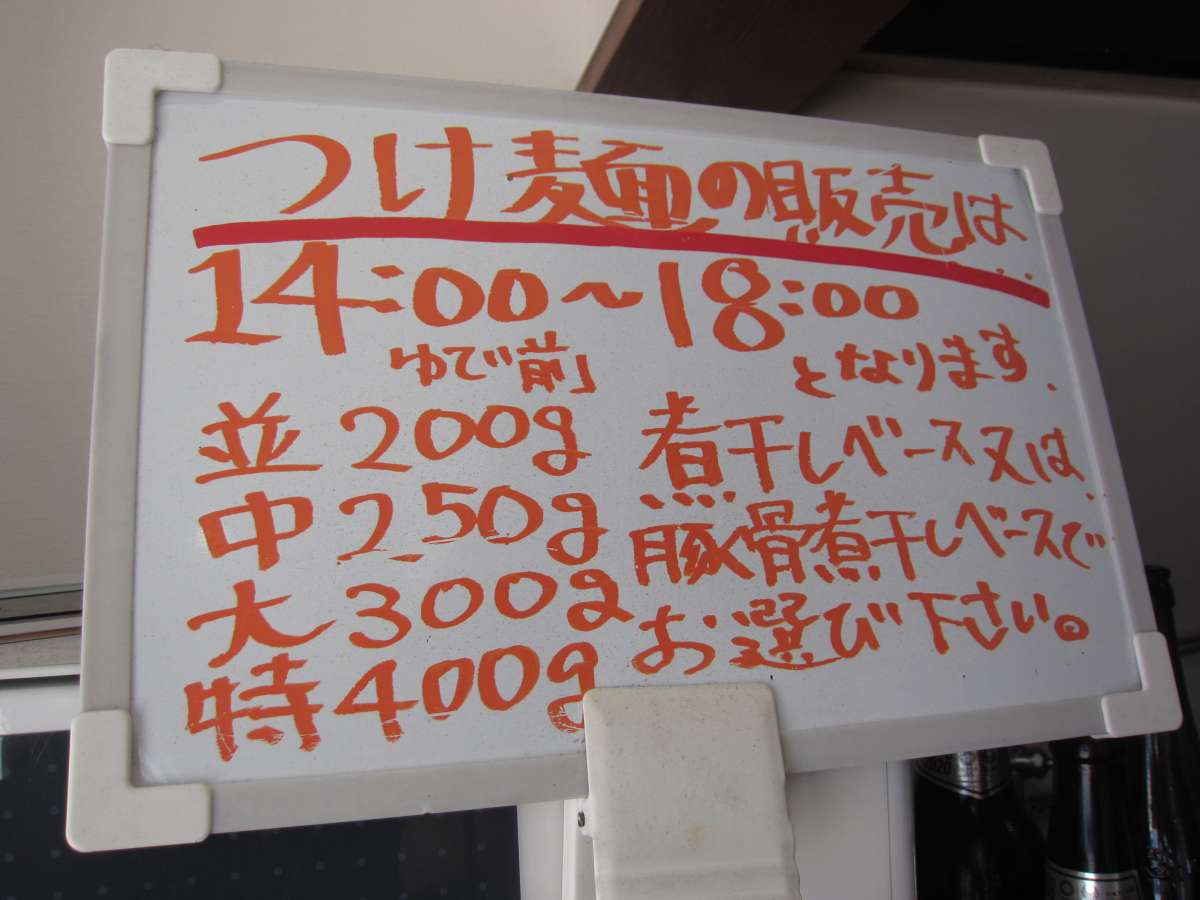 つけ麺の販売は..
14:00～18:00
となります.
ゆで前」
並 200g
中 250g
大 300g
特 400g
煮干しベース又は、
豚骨煮干しベースで
お選び下さい。